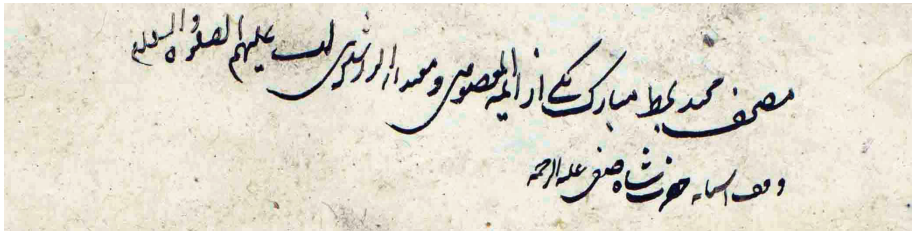 مصحف مجید بخط مبارک یکی از ائمه المعصومین و علیهم الصلوه والسلام
وقف آستانه حضرت شاه صفی علیه الرحمه